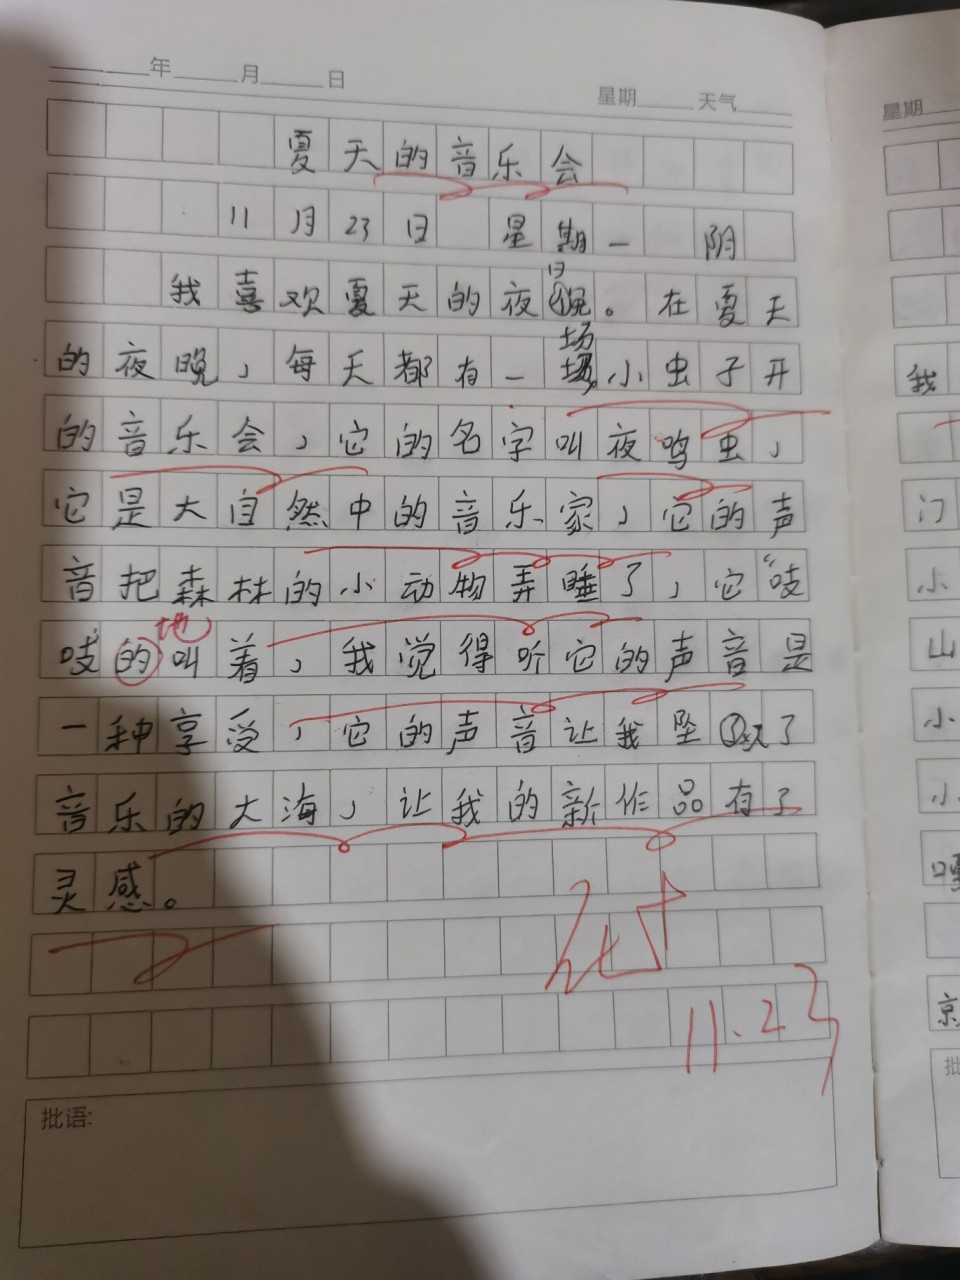 年 月 日 星期 天气
夏天的音乐会
11月23日 星期一 阴
我喜欢夏天的夜晚。在夏天
的夜晚，每天都有一场小虫子开
的音乐会，它的名字叫夜鸣虫，
它是大自然中的音乐家，它的声
音把森林的小动物弄睡了，它“吱
吱”的地叫着，我觉得听它的声音是
一种享受，它的声音让我坠入了
音乐的大海，让我的新作品有了
灵感。
11.23
批语:
星期
我
门
小
山
小
小
京
批